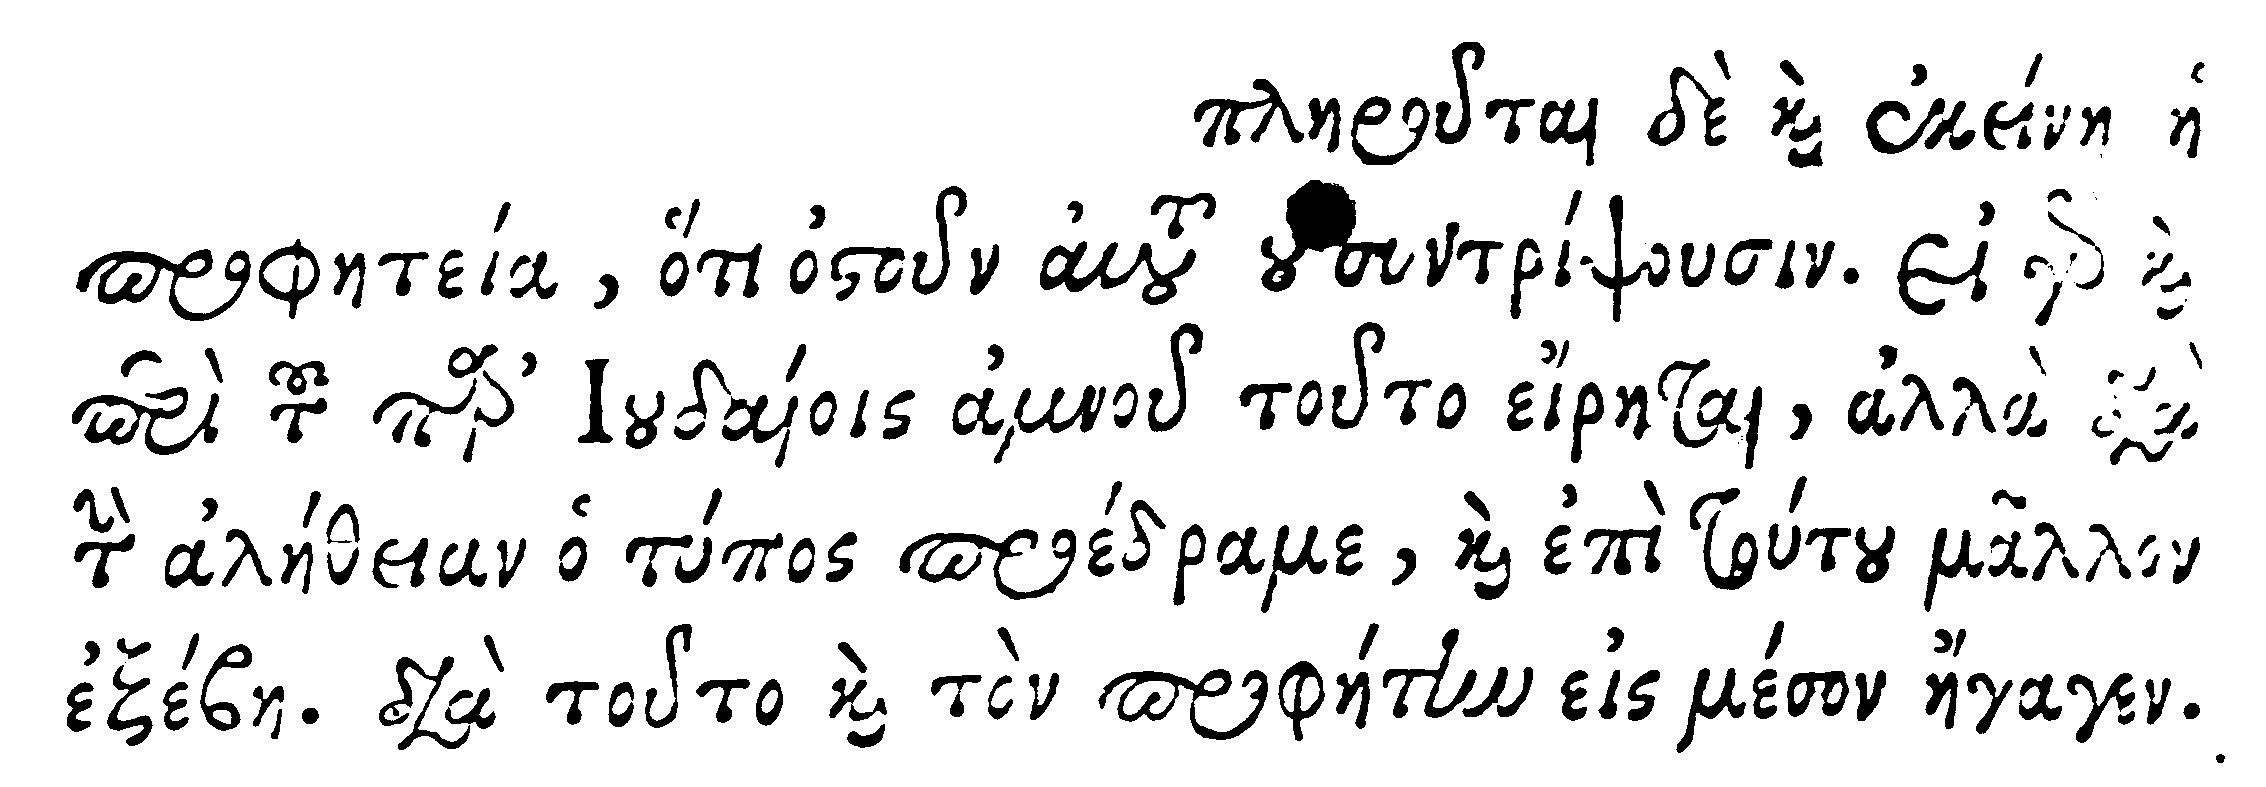 πληροῦται δὲ καὶ ἐκείνη ἡ
προφητεία, ὅτι ὀστοῦν αὐτοῦ οὐ συντρίψουσιν. Εἰ γὰρ καὶ
περὶ τοῦ παρ' Ἰουδαίοις ἀμνοῦ τοῦτο εἴρηται, ἀλλὰ διὰ
τὴν ἀλήθειαν ὁ τύπος προέδραμε, καὶ ἐπὶ τούτου μᾶλλον
ἐξέβη. διὰ τοῦτο καὶ τὸν προφήτην εἰς μέσον ἤγαγεν.